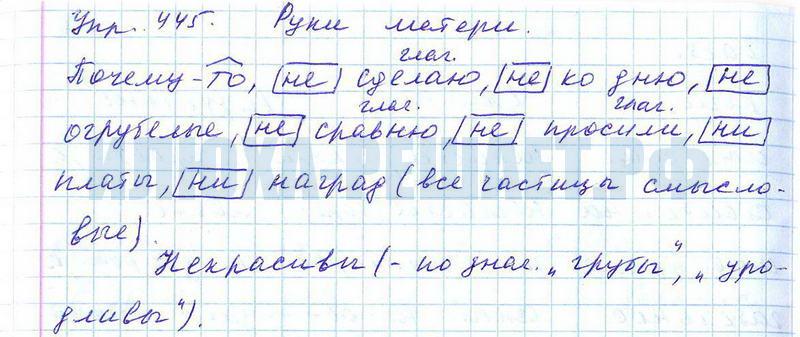 Упр. 445. Руки матери.
глаг.
Почему-то, не сделаю, не ко дню, не
глаг. глаг.
огрубелые, не сравню, не просили, ни
платы, ни наград (все частицы смысло-
вые).
Некрасивы (- по знач. „грубы", „уро-
дливы").